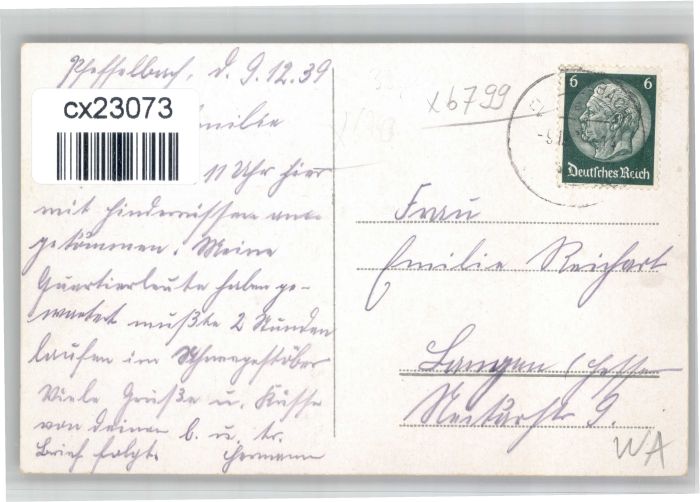 Pfeffelbach, d. 9.12.39
cx23073
Emilie
11 Uhr hier
mit Hindernissen ange-
gekommen. Meine
Quartierleute haben ge-
wartet mußte 2 Stunden
laufen im Schneegestöber
Viele Grüße u. Küsse
von deinem l. u. tr.
Brief folgt. Hermann
x6799
6 6
Deutsches Reich
Frau
Emilie Reichert
Langen / Hessen
9.
WA